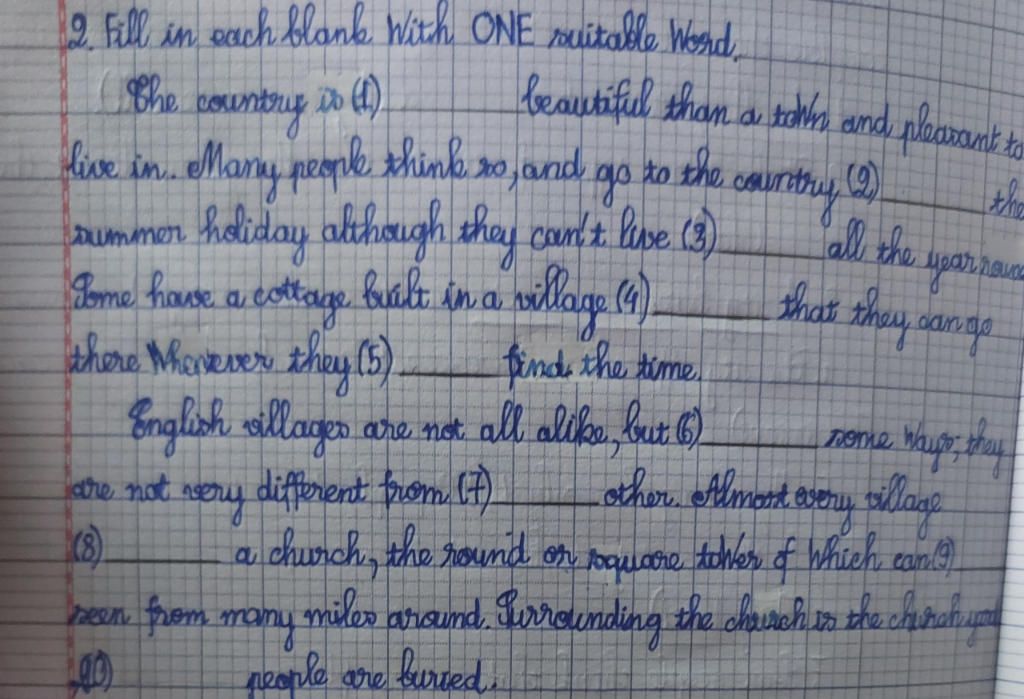 2. Fill in each blank With ONE suitable Word.
The country is (1) ______ beautiful than a town and pleasant to
live in. Many people think so, and go to the country (2) ______ the
summer holiday although they can't live (3) ______ all the year round
Some have a cottage built in a village (4) ______ that they can go
there Whenever they (5) ______ find the time.
English villages are not all alike, but (6) ______ some ways, they
are not very different from (7) ______ other. Almost every village
(8) ______ a church, the round or square tower of Which can (9)
seen from many miles around. Surrounding the church is the church
(10) ______ people are buried.